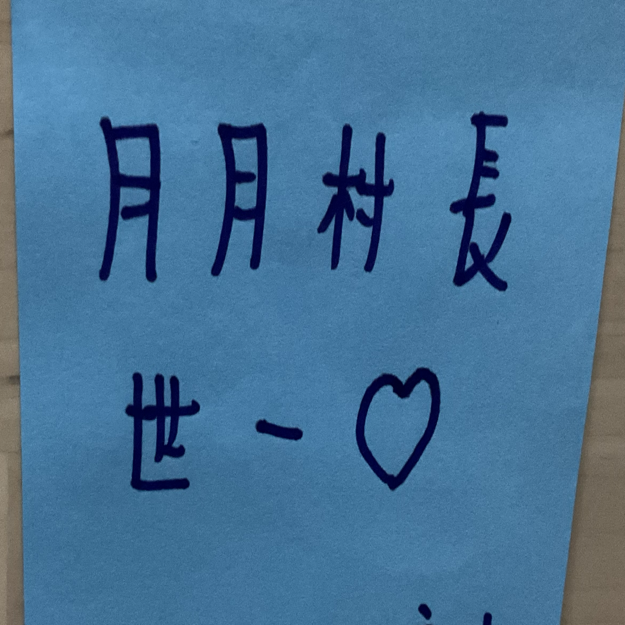 月月村長
世一♡